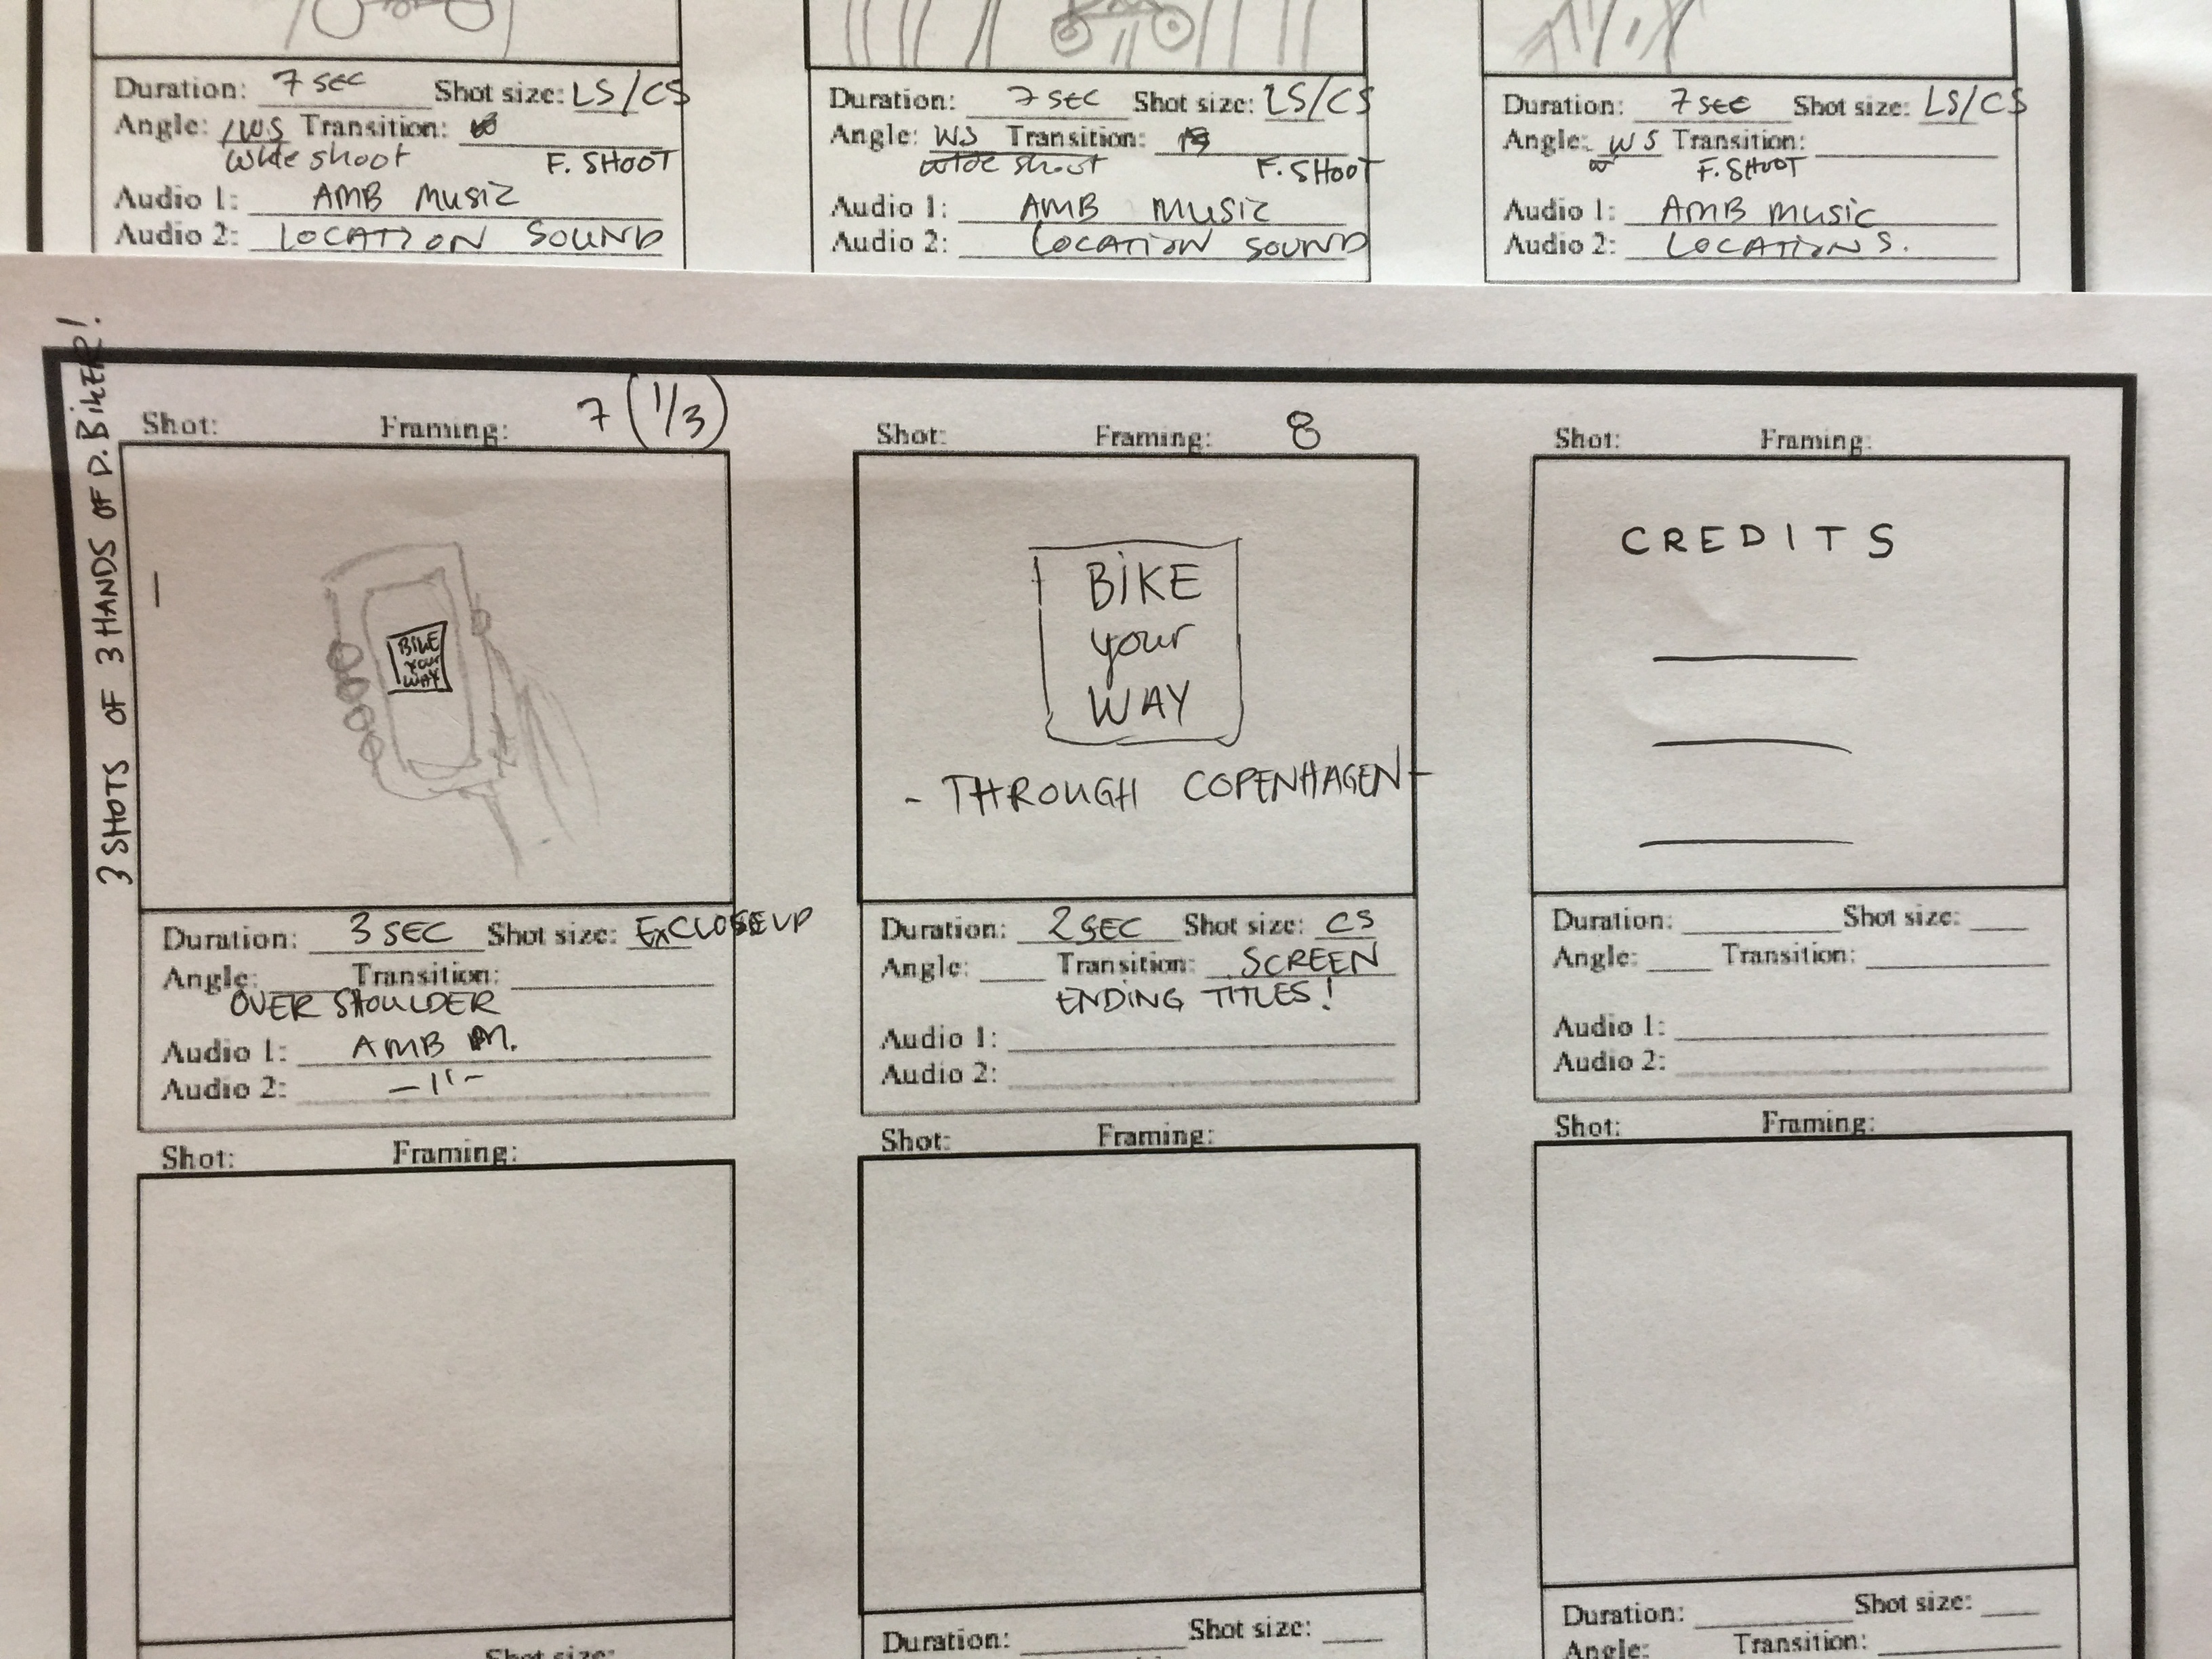 Duration: 7 SEC Shot size: LS/CS
Angle: WS Transition:
wide shoot F. SHOOT
Audio 1: AMB MUSIC
Audio 2: LOCATION SOUND
Duration: 7 SEC Shot size: LS/CS
Angle: WS Transition:
wide shoot F. SHOOT
Audio 1: AMB MUSIC
Audio 2: LOCATION SOUND
Duration: 7 SEC Shot size: LS/CS
Angle: WS Transition:
F. SHOOT
Audio 1: AMB MUSIC
Audio 2: LOCATION S.
3 SHOTS OF 3 HANDS OF D. BIKER!
Shot: Framing: 7 (1/3)
BIKE
your
WAY
Duration: 3 SEC Shot size: EXCLOSEUP
Angle: Transition:
OVER SHOULDER
Audio 1: AMB M.
Audio 2: -11-
Shot: Framing: 8
BIKE
your
WAY
- THROUGH COPENHAGEN -
Duration: 2 SEC Shot size: CS
Angle: Transition: SCREEN
ENDING TITLES!
Audio 1:
Audio 2:
Shot: Framing:
CREDITS
Duration: Shot size:
Angle: Transition:
Audio 1:
Audio 2:
Shot: Framing:
Shot size:
Shot: Framing:
Duration: Shot size:
Shot: Framing:
Duration: Shot size:
Angle: Transition: